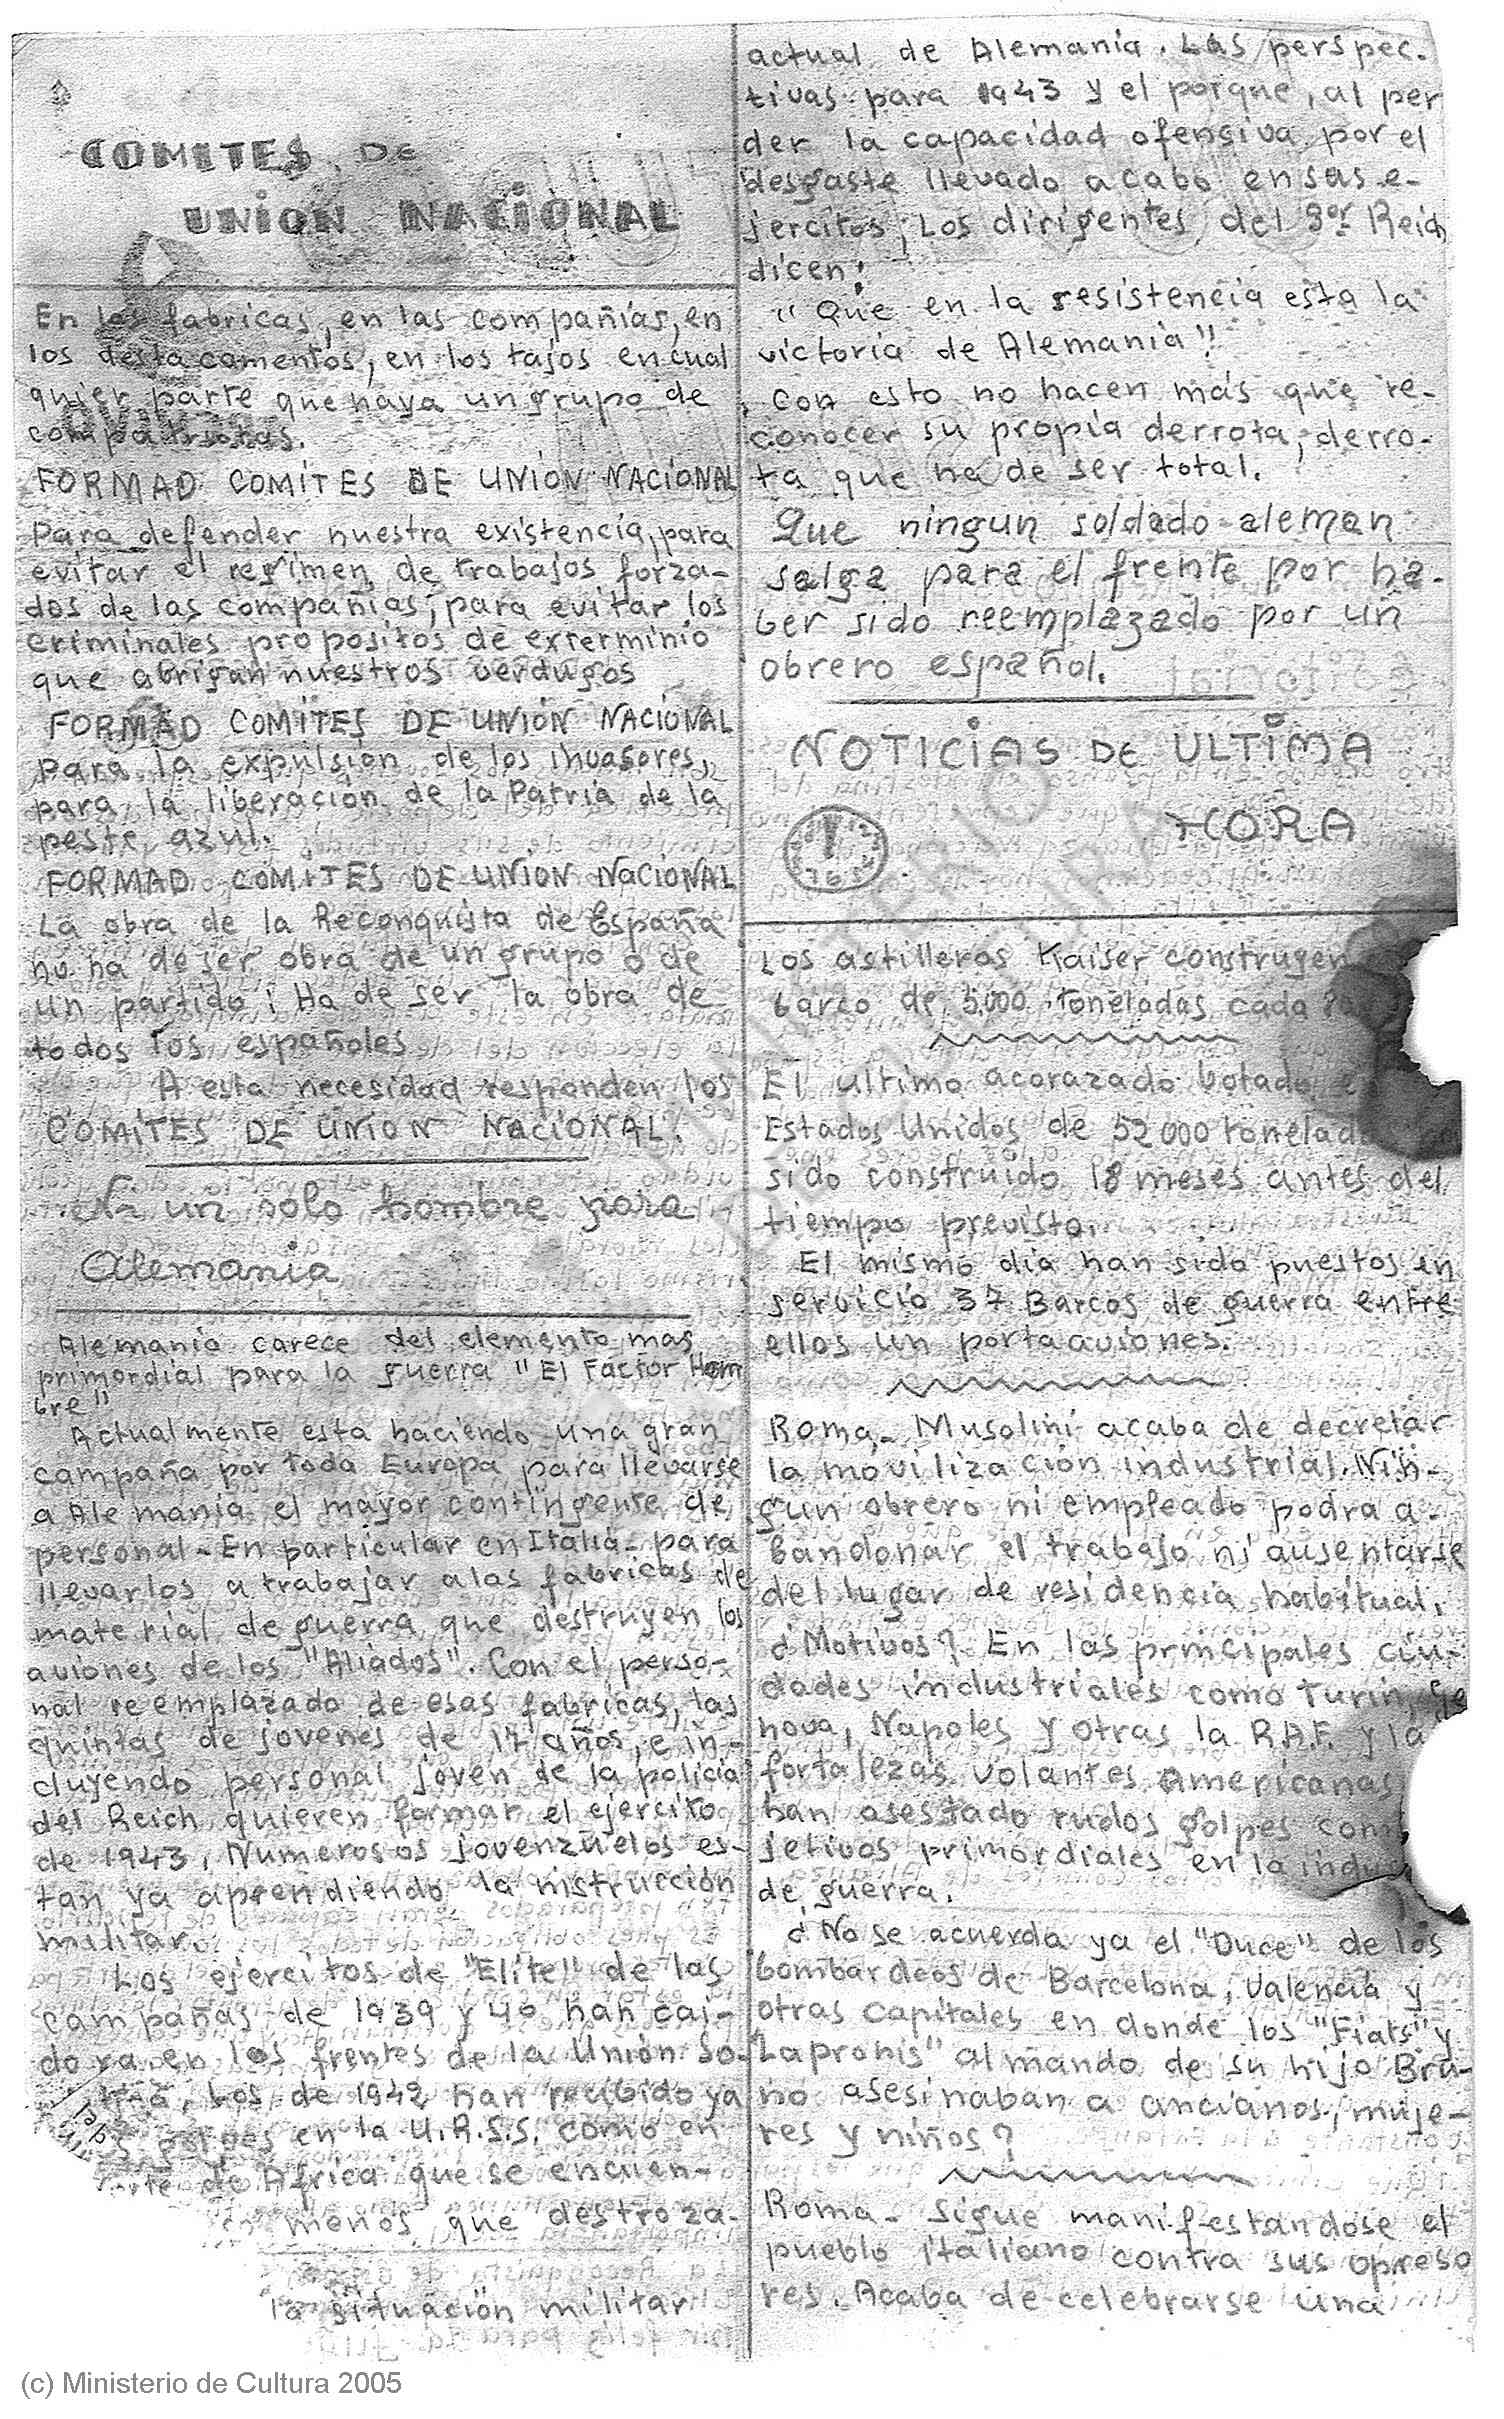 COMITES DE
UNION NACIONAL
En las fabricas, en las compañias, en
los destacamentos, en los tajos en cual
quier parte que haya un grupo de
compatriotas.
FORMAD COMITES DE UNION NACIONAL
Para defender nuestra existencia, para
evitar el regimen de trabajos forza-
dos de las compañias, para evitar los
criminales propositos de exterminio
que abrigan nuestros verdugos
FORMAD COMITES DE UNION NACIONAL
para la expulsion de los invasores,
para la liberación de la Patria de la
peste azul.
FORMAD COMITES DE UNION NACIONAL
La obra de la Reconquista de España
no ha de ser obra de un grupo o de
un partido; Ha de ser la obra de
todos los españoles
A esta necesidad responden los
COMITES DE UNION NACIONAL.
Ni un solo hombre para
Alemania
Alemania carece del elemento mas
primordial para la guerra "El Factor Hom
bre"
Actualmente esta haciendo una gran
campaña por toda Europa para llevarse
a Alemania el mayor contingente de
personal - En particular en Italia - para
llevarlos a trabajar a las fabricas de
material de guerra que destruyen los
aviones de los "Aliados". Con el perso-
nal reemplazado de esas fabricas, las
quintas de jovenes de 17 años, e in-
cluyendo personal joven de la policia
del Reich quieren formar el ejercito
de 1943. Numerosos jovenzuelos es-
tan ya aprendiendo la instrucción
militar.
Los ejercitos de "Elite" de las
campañas de 1939 y 40 han cai-
do ya en los frentes de la Unión So-
Los de 1942 han recibido ya
golpes en la U.R.S.S. como en
de Africa que se encuen-
menos que destroza-
la situación militar
actual de Alemania. Las perspec-
tivas para 1943 y el porque, al per
der la capacidad ofensiva por el
desgaste llevado a cabo en sus e-
jercitos, Los dirigentes del 3er Reich
dicen:
"Que en la resistencia esta la
victoria de Alemania"
Con esto no hacen más que re-
conocer su propia derrota, derro-
ta que ha de ser total.
Que ningun soldado aleman
salga para el frente por ha-
ber sido reemplazado por un
obrero español.
NOTICIAS DE ULTIMA
HORA
Los astilleros Kaiser construyen
barco de 5.000 toneladas cada
El ultimo acorazado botado
Estados Unidos de 52000 tonelad
sido construido 18 meses antes del
tiempo previsto.
El mismo dia han sido puestos en
servicio 37 Barcos de guerra entre
ellos un portaaviones.
Roma.- Musolini acaba de decretar
la movilización industrial. Nin-
gun obrero ni empleado podra a-
bandonar el trabajo ni ausentarse
del lugar de residencia habitual.
¿Motivos? En las principales ciu-
dades industriales como Turin, Ge
nova, Napoles y otras la R.A.F. y la
fortalezas volantes Americanas
han asestado rudos golpes
jetivos primordiales en la
de guerra.
¿No se acuerda ya el "Duce" de los
bombardeos de Barcelona, Valencia y
otras capitales en donde los "Fiats" y
"Lapronis" al mando de su hijo Bru-
no asesinaban a ancianos, muje-
res y niños?
Roma.- Sigue manifestandose el
pueblo italiano contra sus opreso
res. Acaba de celebrarse una
MINISTERIO
DE CULTURA
(c) Ministerio de Cultura 2005